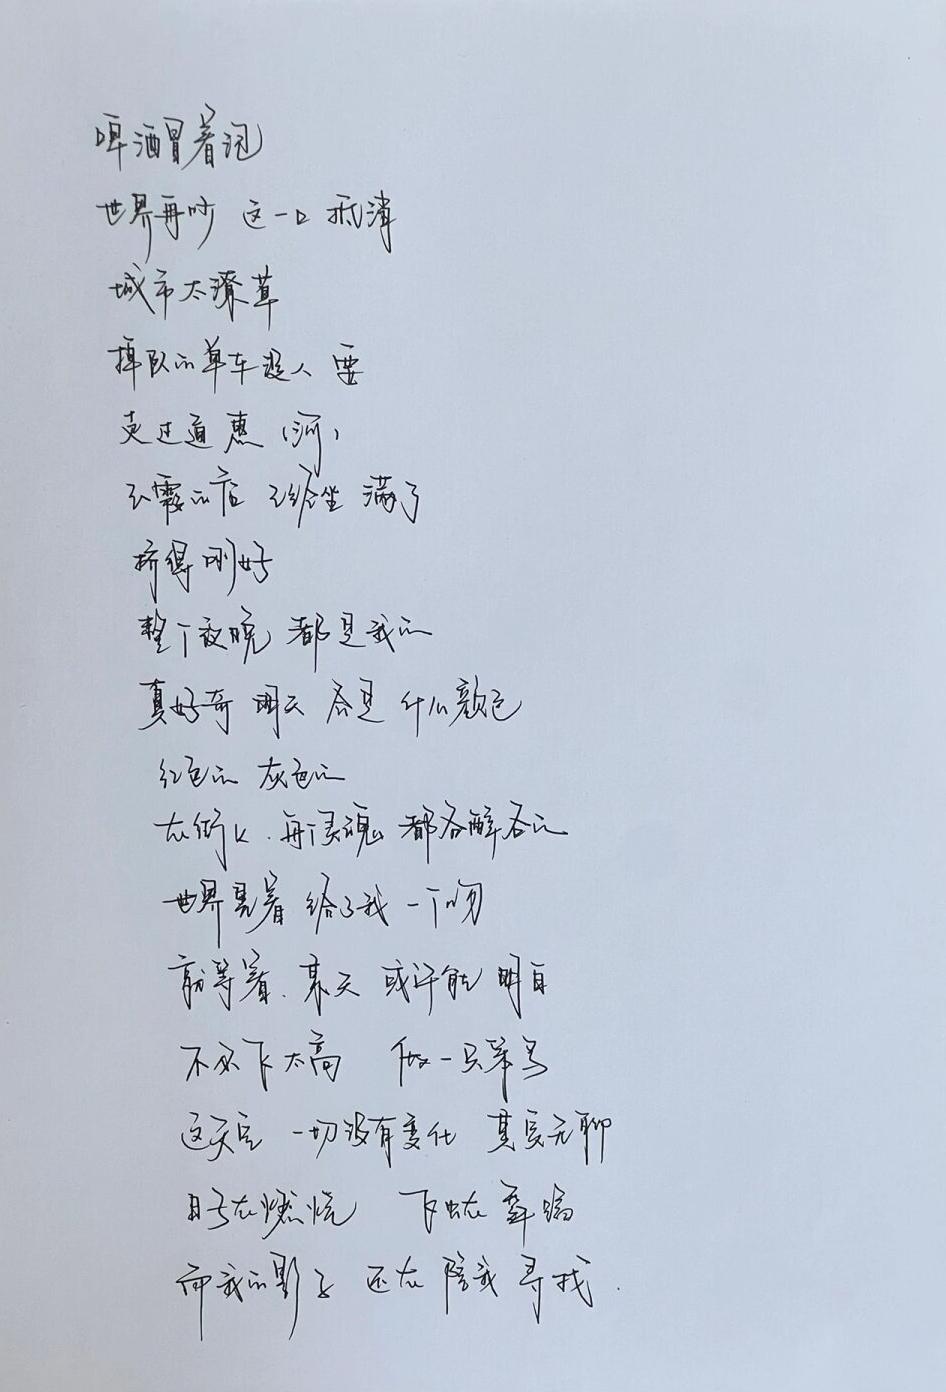 啤酒冒着泡
世界再吵 这一口 抵消
城市太潦草
掉队的单车没人要
走过道惠(河)
的店 已经坐满了
挤得刚好
整个夜晚 都是我的
真好奇 明天 会是 什么颜色
红色的 灰色的
在街上.每个灵魂 都各醉各的
世界晃着 给了我 一个吻
就等着.某天 或许能 明白
不必飞太高 做一只笨鸟
这天空 一切没有变化 其实无聊
自己在燃烧 飞虫在舞蹈
而我的影子 还在陪我寻找.